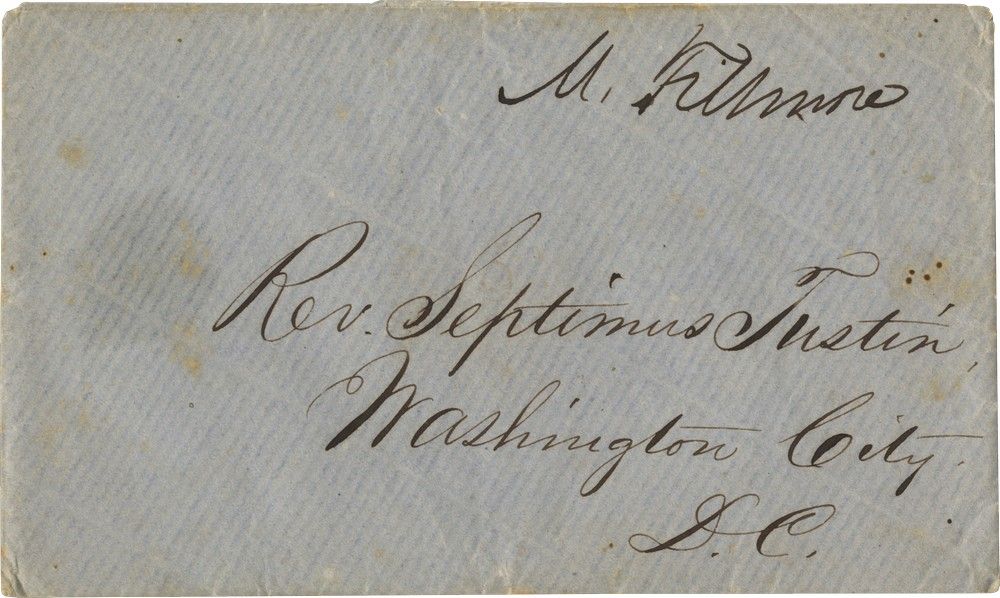 M. Fillmore
Rev. Septimus Tustin,
Washington City.
D.C.